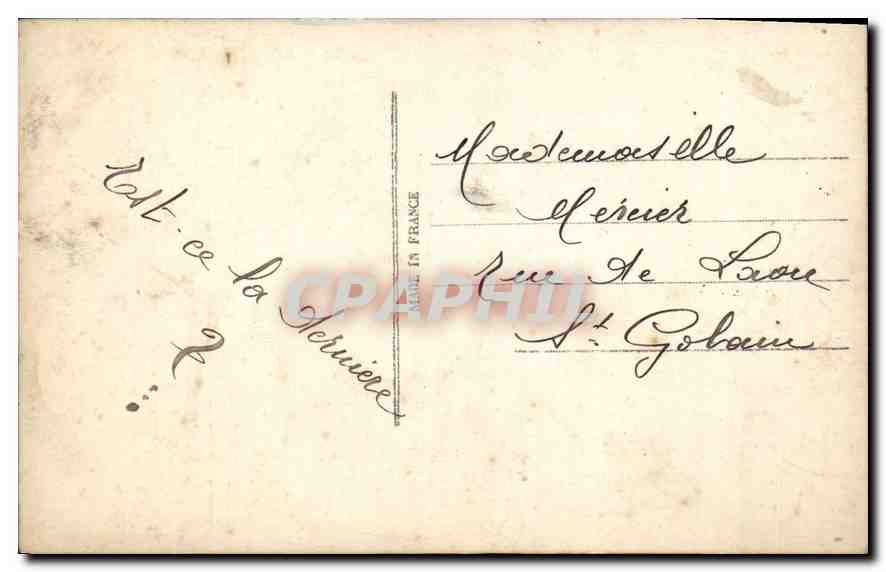 Est-ce la dernière
? ...
MADE IN FRANCE
Mademoiselle
Mercier
Rue de Laon
St Gobain
CPAPHIL